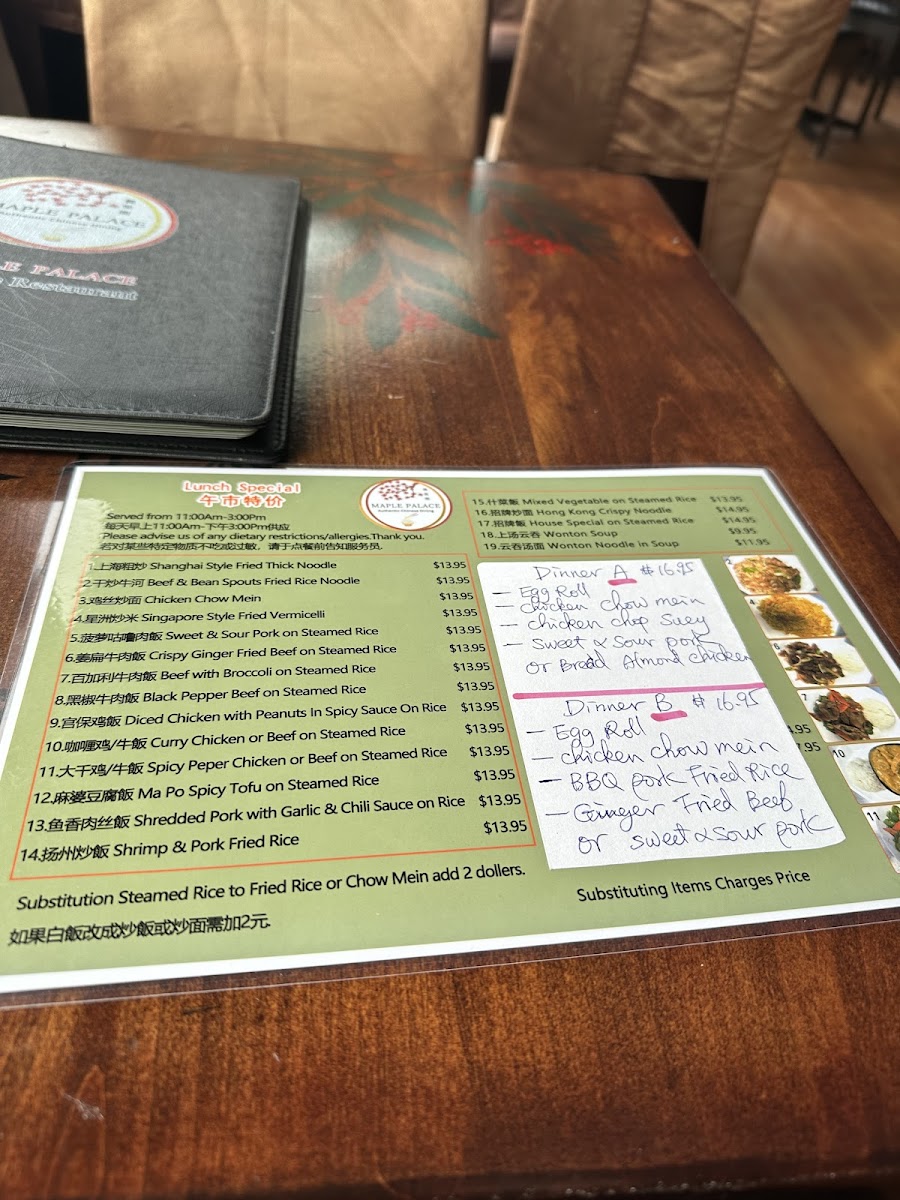 MAPLE PALACE
LE PALACE
Restaurant
Lunch Special
午市特价
MAPLE PALACE
Served from 11:00Am-3:00Pm
每天早上11:00Am-下午3:00Pm供应
Please advise us of any dietary restrictions/allergies.Thank you.
若对某些特定物质不吃或过敏，请于点餐前告知服务员.
1.上海粗炒 Shanghai Style Fried Thick Noodle $13.95
2.干炒牛河 Beef & Bean Spouts Fried Rice Noodle $13.95
3.鸡丝炒面 Chicken Chow Mein $13.95
4.星洲炒米 Singapore Style Fried Vermicelli $13.95
5.菠萝咕噜肉飯 Sweet & Sour Pork on Steamed Rice $13.95
6.姜扁牛肉飯 Crispy Ginger Fried Beef on Steamed Rice $13.95
7.百加利牛肉飯 Beef with Broccoli on Steamed Rice $13.95
8.黑椒牛肉飯 Black Pepper Beef on Steamed Rice $13.95
9.宫保鸡飯 Diced Chicken with Peanuts In Spicy Sauce On Rice $13.95
10.咖喱鸡/牛飯 Curry Chicken or Beef on Steamed Rice $13.95
11.大干鸡/牛飯 Spicy Peper Chicken or Beef on Steamed Rice $13.95
12.麻婆豆腐飯 Ma Po Spicy Tofu on Steamed Rice $13.95
13.鱼香肉丝飯 Shredded Pork with Garlic & Chili Sauce on Rice $13.95
14.扬州炒飯 Shrimp & Pork Fried Rice $13.95
Substitution Steamed Rice to Fried Rice or Chow Mein add 2 dollers.
如果白飯改成炒飯或炒面需加2元.
15.什菜飯 Mixed Vegetable on Steamed Rice $13.95
16.招牌炒面 Hong Kong Crispy Noodle $14.95
17.招牌飯 House Special on Steamed Rice $14.95
18.上汤云吞 Wonton Soup $9.95
19.云吞汤面 Wonton Noodle in Soup $11.95
Dinner A $16.95
- Egg Roll
- chicken chow mein
- chicken chop suey
- Sweet & sour pork
or Bread Almond chicken
Dinner B $16.95
- Egg Roll
- chicken chow mein
- BBQ pork Fried Rice
- Ginger Fried Beef
or sweet & sour pork
4.95
7.95
Substituting Items Charges Price
2
4
6
7
10
11